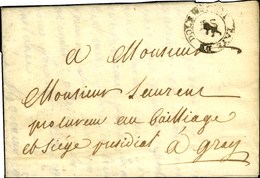 a Monsieur
Monsieur Laurent
procureur au Bailliage
et siège presidial à gray